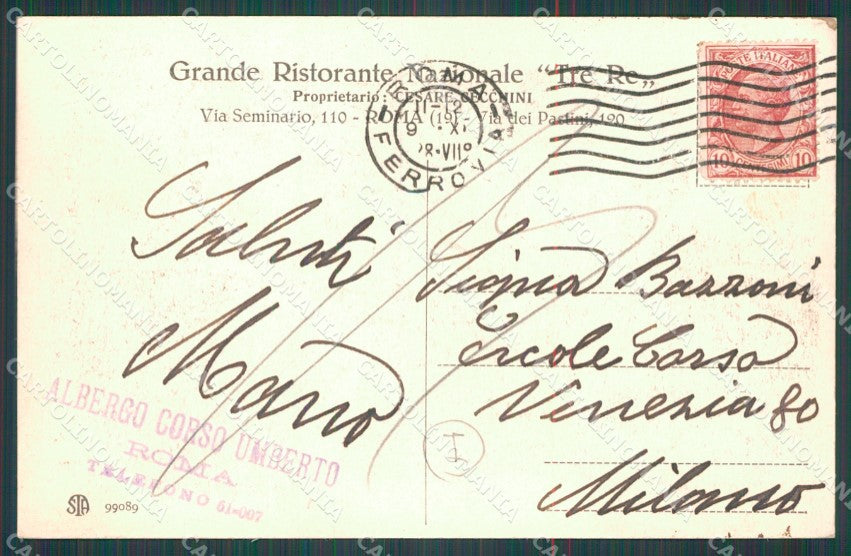 Grande Ristorante Nazionale "Tre Re"
Proprietario: CESARE CECCHINI
Via Seminario, 110 - ROMA (19) - Via dei Pastini, 120
ROMA
FERROVIA
11-12
9 XI
POSTE ITALIANE
10 CENTESIMI 10
Saluti
Mario
Signa Bazzoni
Ercole Corso
Venezia 80
Milano
ALBERGO CORSO UMBERTO
ROMA
TELEFONO 61-007
STA 99089
CARTOLINOMANIA